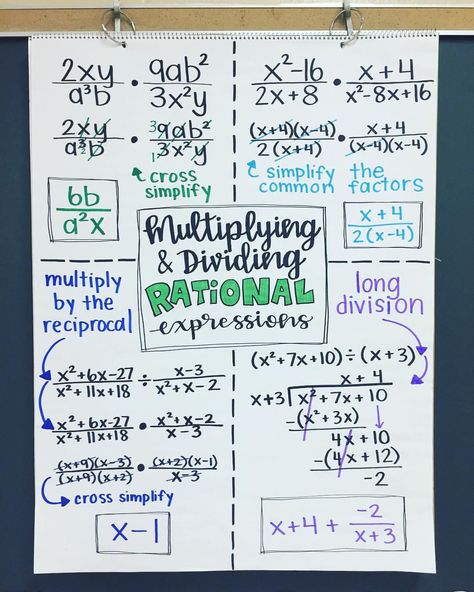 2xy/a³b · 9ab²/3x²y
2xy/a³b · 9ab²/3x²y
2 3 1
cross
simplify
6b/a²x
x²-16/2x+8 · x+4/x²-8x+16
(x+4)(x-4)/2(x+4) · x+4/(x-4)(x-4)
simplify the
common factors
x+4/2(x-4)
Multiplying
& Dividing
RATIONAL
expressions
multiply
by the
reciprocal
x²+6x-27/x²+11x+18 ÷ x-3/x²+x-2
x²+6x-27/x²+11x+18 · x²+x-2/x-3
(x+9)(x-3)/(x+9)(x+2) · (x+2)(x-1)/x-3
cross simplify
x-1
long
division
(x²+7x+10)÷(x+3)
x+4
x+3 x²+7x+10
-(x²+3x)
4x+10
-(4x+12)
-2
x+4+ -2/x+3